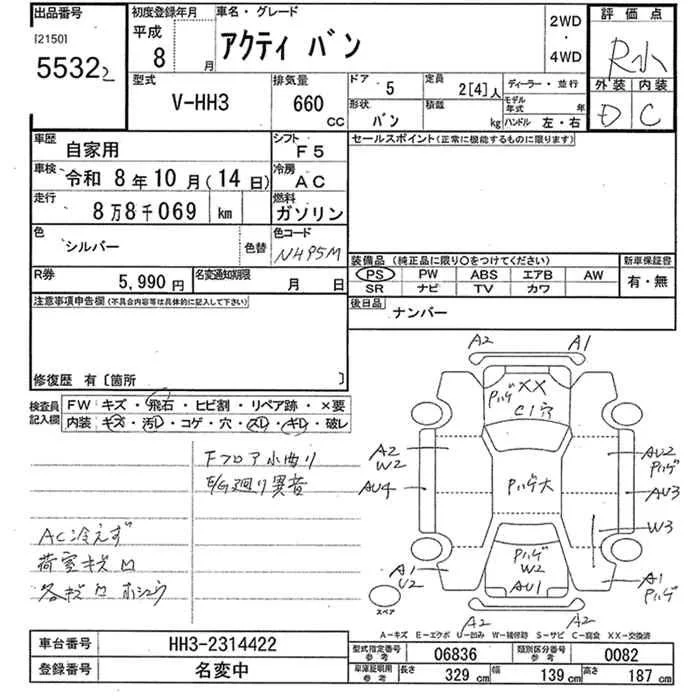 出品番号
[2150]
5532 2
初度登録年月
平成
8 月
車名・グレード
アクティ バン
2WD
・
4WD
評価点
R小
外装 内装
D C
型式
V-HH3
排気量
660
CC
ドア 5
定員 2[4]人
ディーラー・並行
形状 バン
積載 kg
モデル年式 年
ハンドル 左・右
車歴 自家用
シフト F5
車検 令和 8年 10月(14日)
冷房 AC
走行 8万8千069 km
燃料 ガソリン
色 シルバー
色替
色コード NH95M
R券 5,990円
名変通知期限 月 日
セールスポイント(正常に機能するものに限ります)
装備品 (純正品に限り○をつけてください)
新車保証書
PS PW ABS エアB AW
SR ナビ TV カワ
有・無
後日品 ナンバー
注意事項申告欄(不具合内容等は具体的に記入して下さい)
修復歴 有〔箇所 〕
検査員記入欄
FW キズ・飛石・ヒビ割・リペア跡・×要
内装 キズ・汚レ・コゲ・穴・スレ・キレ・破レ
Fフロア小曲り
E/G廻り異音
AC冷えず
荷室キズ凹
各キズ凹ホシュウ
A2 A1
Pハゲ XX
C1穴
A2
W2
AU2
Pハゲ
AU4
Pハゲ大
AU3
W3
Pハゲ
W2
AU1
A1
U2
A1
Pハゲ
スペア
A2 A2
A-キズ E-エクボ U-凹み W-補修跡 S-サビ C-腐食 XX-交換済
車台番号 HH3-2314422
登録番号 名変中
型式指定番号 参考 06836
類別区分番号 参考 0082
車庫証明用 参考 長さ 329 cm 幅 139 cm 高さ 187 cm